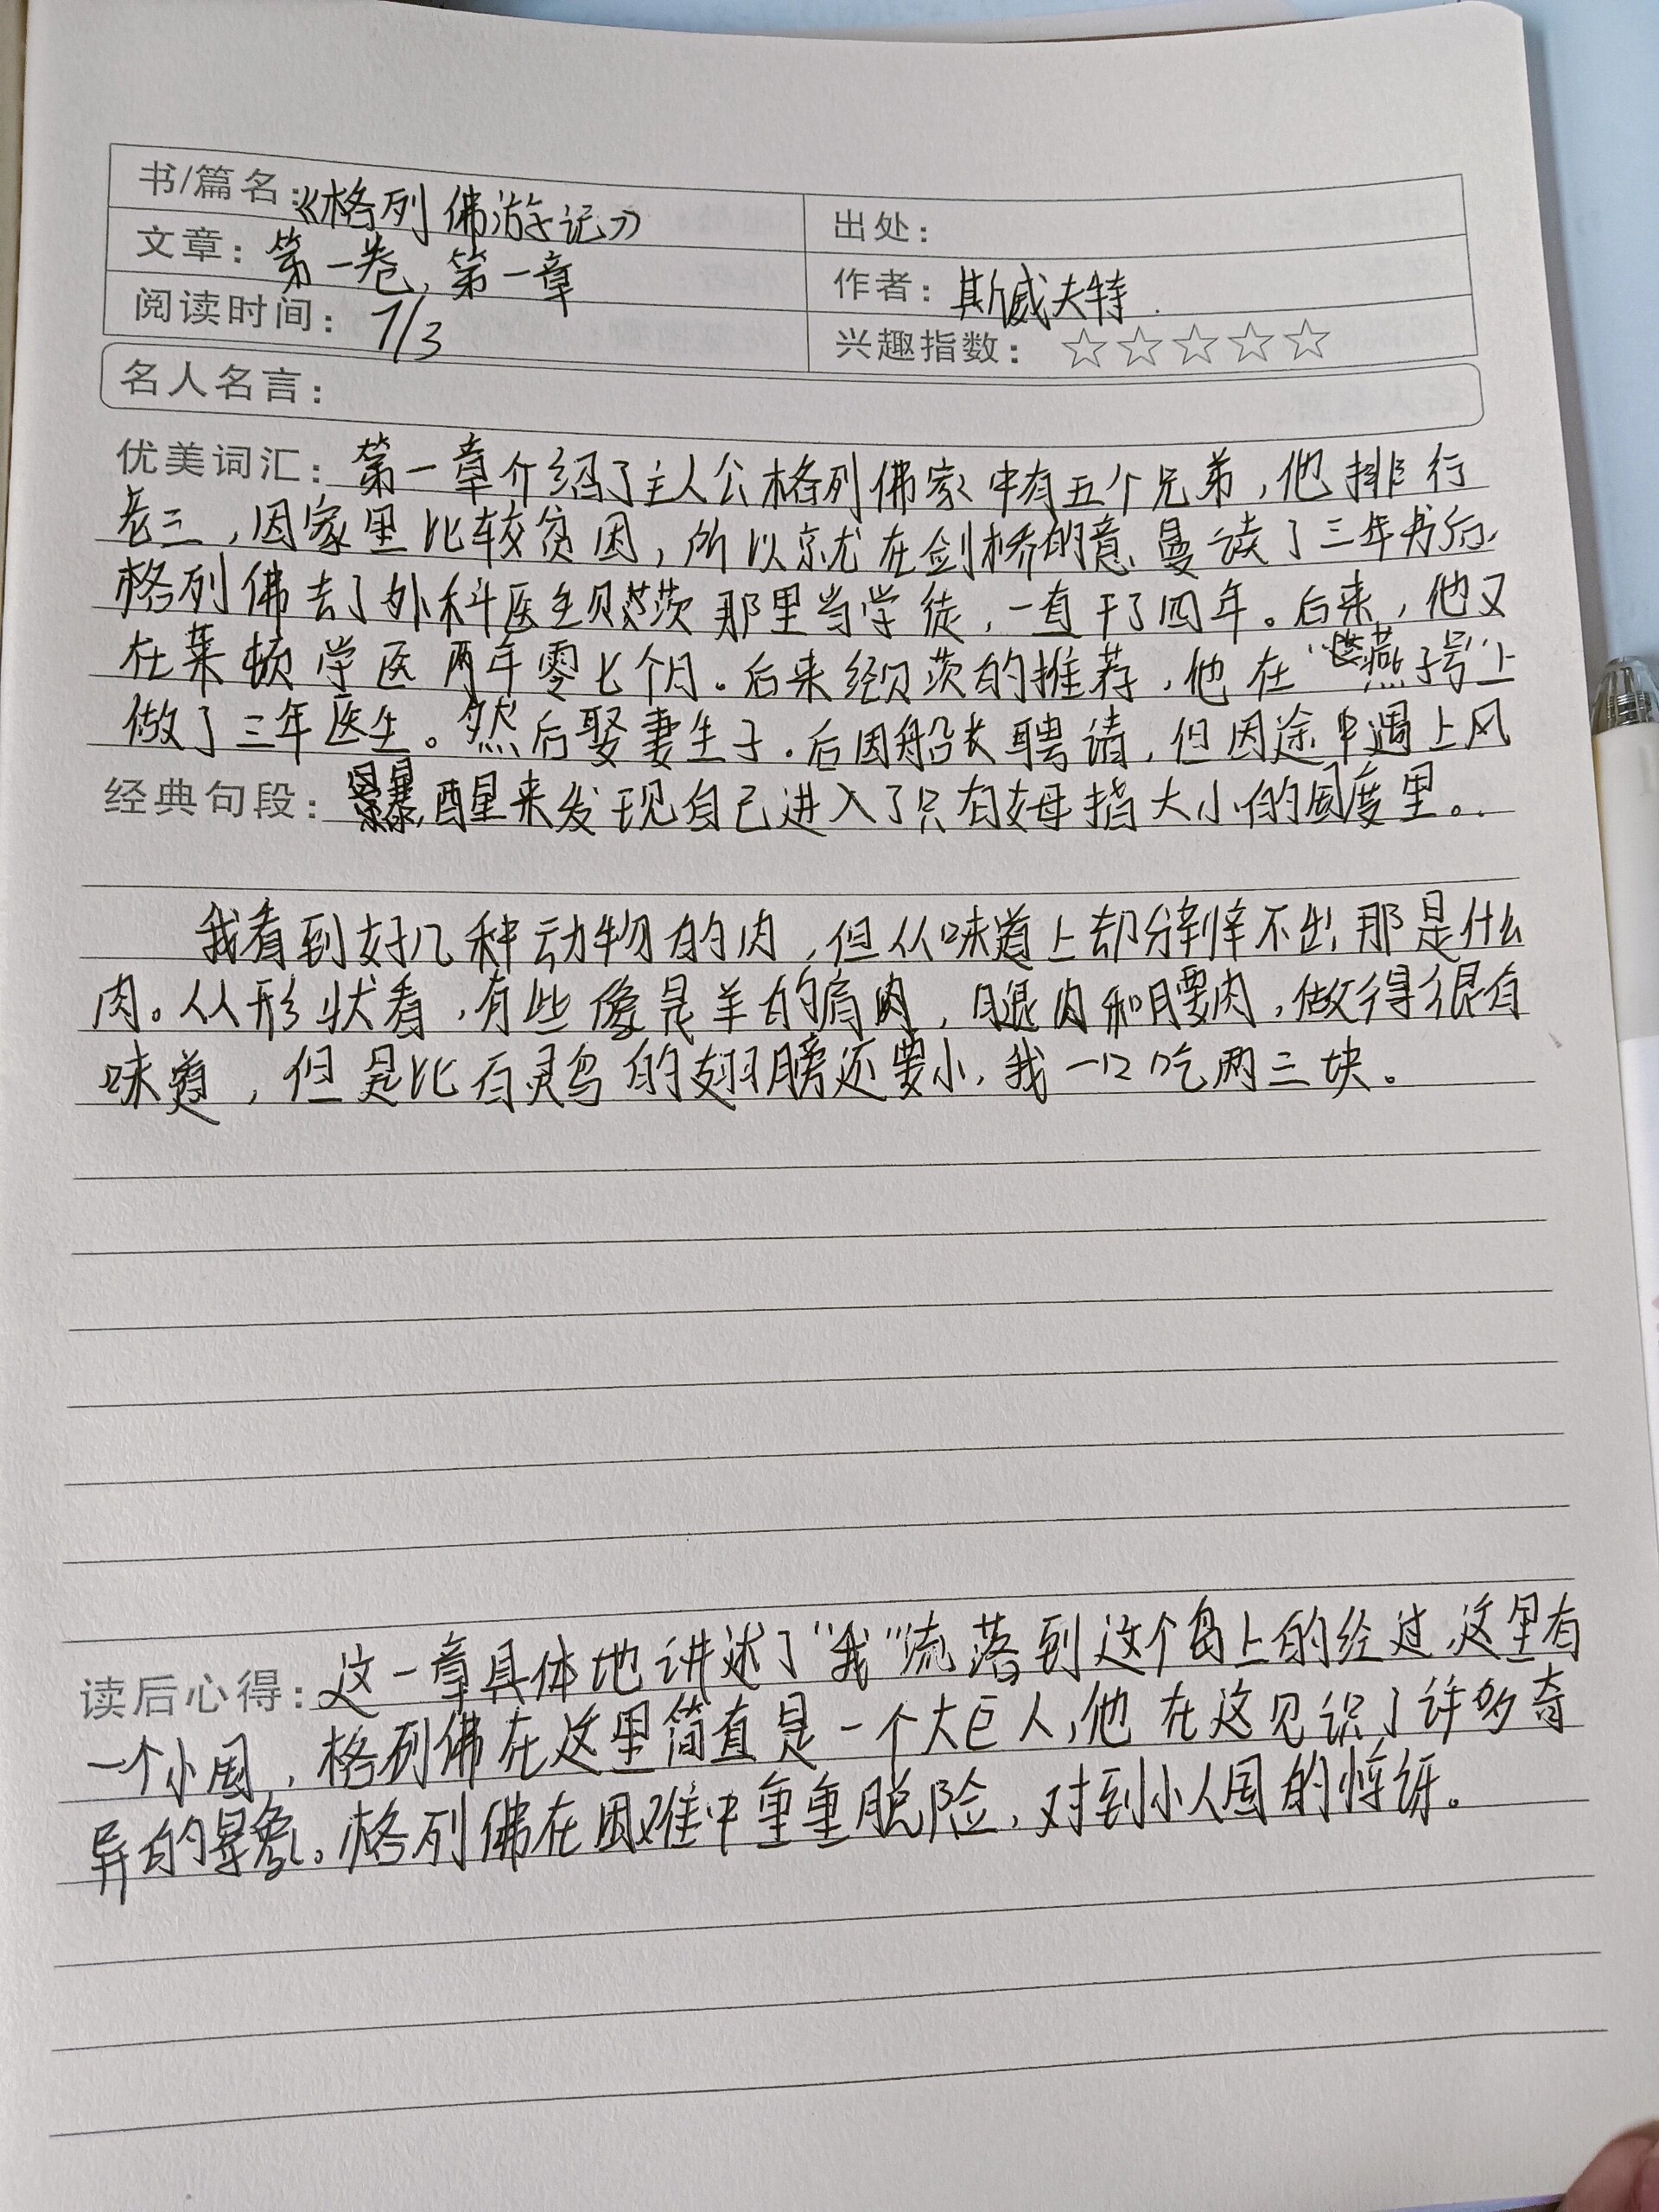 书/篇名：《格列佛游记》
出处：
文章：第一卷，第一章
作者：斯威夫特.
阅读时间：7/3
兴趣指数：☆☆☆☆☆
名人名言：
优美词汇：第一章介绍了主人公格列佛家中有五个兄弟，他排行
老三，因家里比较贫困，所以就在剑桥的意曼读了三年书后，
格列佛去了外科医生贝茨那里当学徒，一直干了四年。后来，他又
在莱顿学医两年零七个月。后来经贝茨的推荐，他在“燕子号”上
做了三年医生。然后娶妻生子.后因船长聘请，但因途中遇上风
经典句段：暴，醒来发现自己进入了只有拇指大小的国度里。
我看到好几种动物的肉，但从味道上却分辨不出，那是什么
肉。从形状看，有些像是羊的肩肉，腿肉和腰肉，做得很有
味道，但是比百灵鸟的翅膀还要小，我一口吃两三块。
读后心得：这一章具体地讲述了“我”流落到这个岛上的经过，这里有
一个小国，格列佛在这里简直是一个大巨人，他在这见识了许多奇
异的景象。格列佛在困难中重重脱险，对到小人国的惊讶。